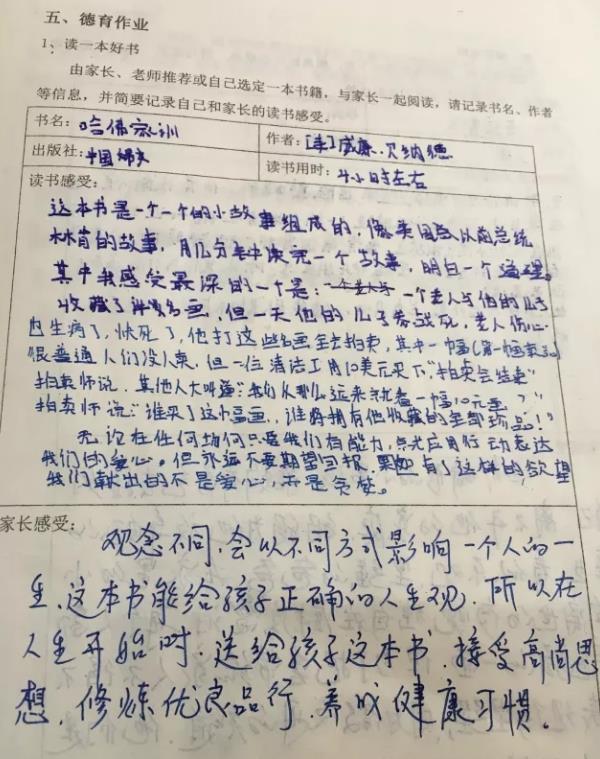 五、德育作业
1、读一本好书
由家长、老师推荐或自己选定一本书籍，与家长一起阅读，请记录书名、作者
等信息，并简要记录自己和家长的读书感受。
书名：哈佛家训
作者：[美]威廉·贝纳德
出版社：中国妇女
读书用时：4小时左右
读书感受：
这本书是一个一个的小故事组成的，像美国以前总统
林肯的故事，用几分钟读完一个故事，明白一个道理。
其中我感受最深的一个是：一个老人与他的儿子
收藏了许多名画，但一天他的儿子参战死，老人伤心
生病了，快死了，他打这些名画全拍卖，其中一幅(第一幅
很普通人们没人来，但一位清洁工用10美元买下，"拍卖会结束"
拍卖师说，其他人大叫道："我们从那么远来就看一幅10元画？"
拍卖师说："谁买了这幅画，谁将拥有他收藏的全部珍品！"
无论在任何场何只要我们有能力，应用行动表达
我们的爱心。但永远不要期望回报，有了这样的欲望
我们献出的不是爱心，而是贪婪。
家长感受：
观念不同，会以不同方式影响一个人的一
生，这本书能给孩子正确的人生观，所以在
人生开始时，送给孩子这本书，接受高尚思
想，修炼优良品行，养成健康习惯．